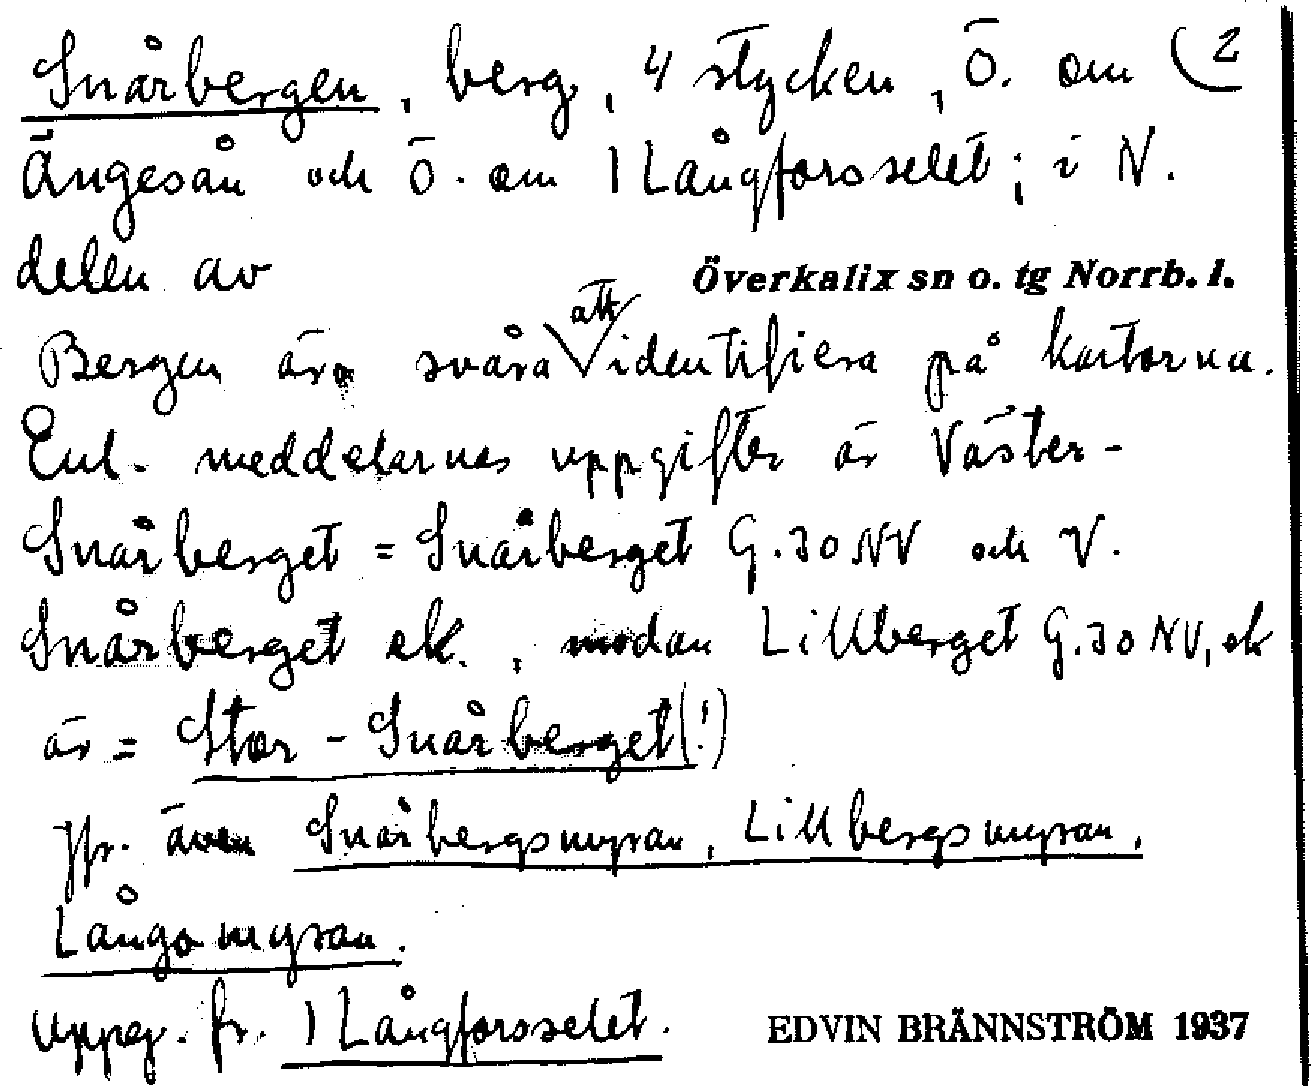 Snårbergen, berg, 4 stycken, Ö. om (2
Ängesån och Ö. om 1 Långforsselet; i N.
delen av Överkalix sn o. tg Norrb. l.
Bergen äro svåra att identifiera på kartorna.
Enl. meddelarnas uppgifter är Väster-
Snårberget = Snårberget G.30 NV och V.
Snårberget ek., medan Lillberget G.30 NV, ek
är = Stor-Snårberget(!)
Jfr. även Snårbergsmyran, Lillbergsmyran,
Långomyran.
Uppg. fr. 1 Långforsselet. EDVIN BRÄNNSTRÖM 1937